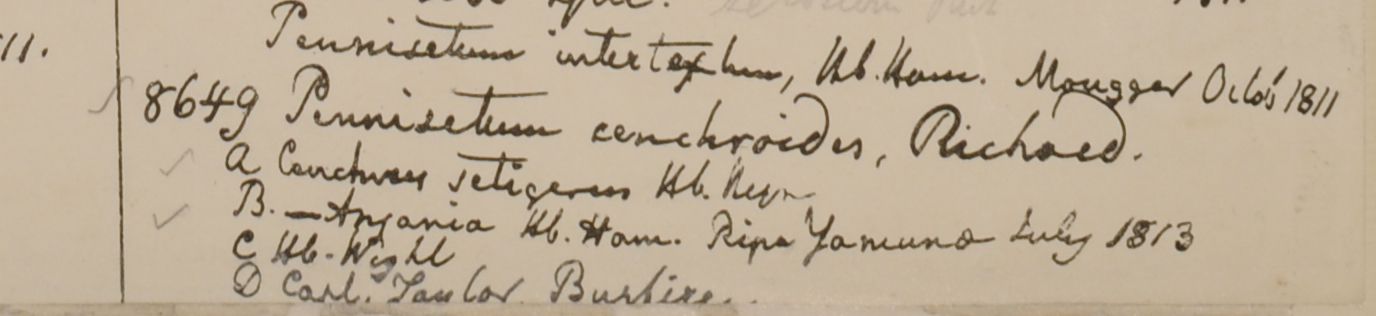 11.
Pennisetum intertextum, Hb. Ham. Mougger Octob 1811
8649 Pennisetum cenchroides, Richard.
A Cenchrus setigerus Hb. Heyn
B. — Anjania Hb. Ham. Ripa Yamuna July 1813
C Hb. Wight
D Capt. Taylor Bushire.